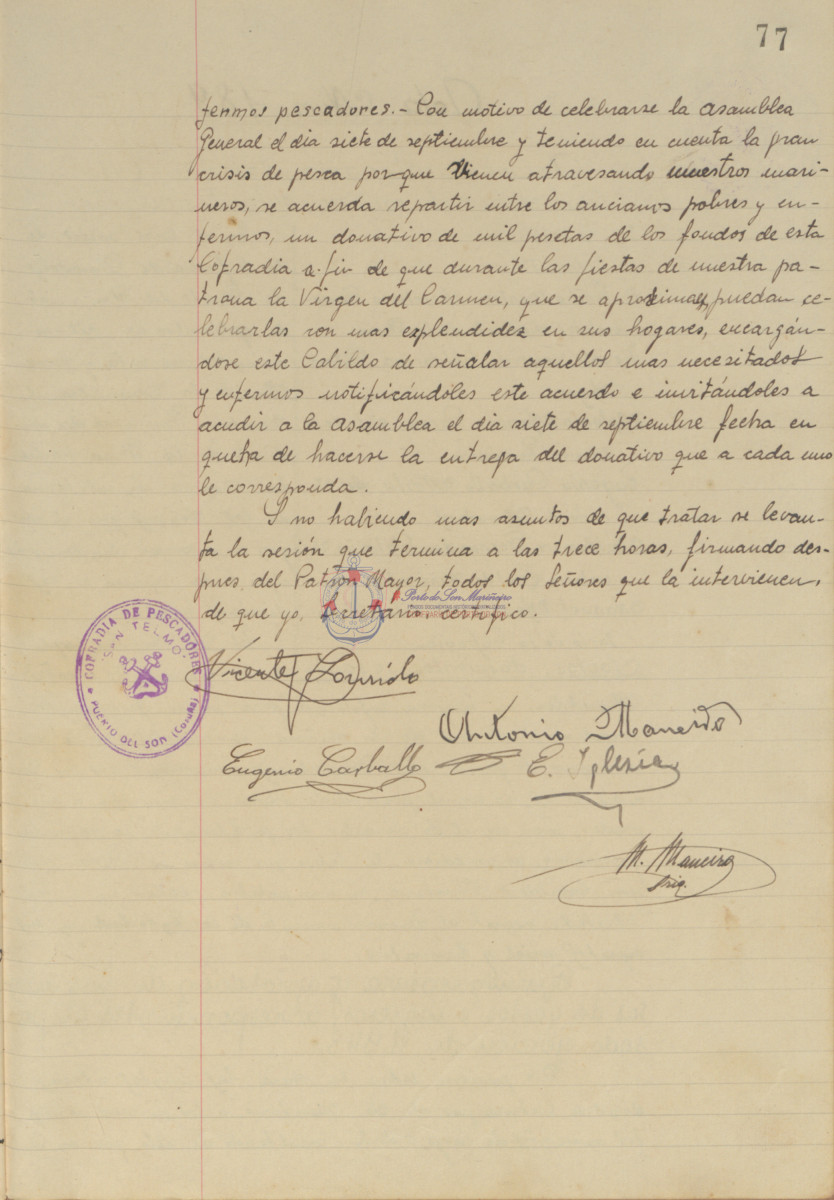 77
fermos pescadores.- Con motivo de celebrarse la Asamblea
General el dia siete de septiembre y teniendo en cuenta la gran
crisis de pesca porque vienen atravesando nuestros mari-
neros, se acuerda repartir entre los ancianos pobres y en-
fermos, un donativo de mil pesetas de los fondos de esta
Cofradia a fin de que durante las fiestas de nuestra pa-
trona la Virgen del Carmen, que se aproximan, puedan ce-
lebrarlas con mas explendidez en sus hogares, encargán-
dose este Cabildo de señalar aquellos mas necesitados
y enfermos notificándoles este acuerdo e invitándoles a
acudir a la Asamblea el dia siete de septiembre fecha en
que ha de hacerse la entrega del donativo que a cada uno
le corresponda.
Y no habiendo mas asuntos de que tratar se levan-
ta la sesión que termina a las trece horas, firmando des-
pues del Patrón Mayor, todos los Señores que la intervienen,
de que yo, Secretario certifico.
Porto do Son Mariñeiro
COFRADIA DE PESCADORES
"SAN TELMO"
PUERTO DEL SON (Coruña)
Vicente
Antonio Maneiro
Eugenio Carballo
E. Iglesias
M. Maneiro
Sriº.